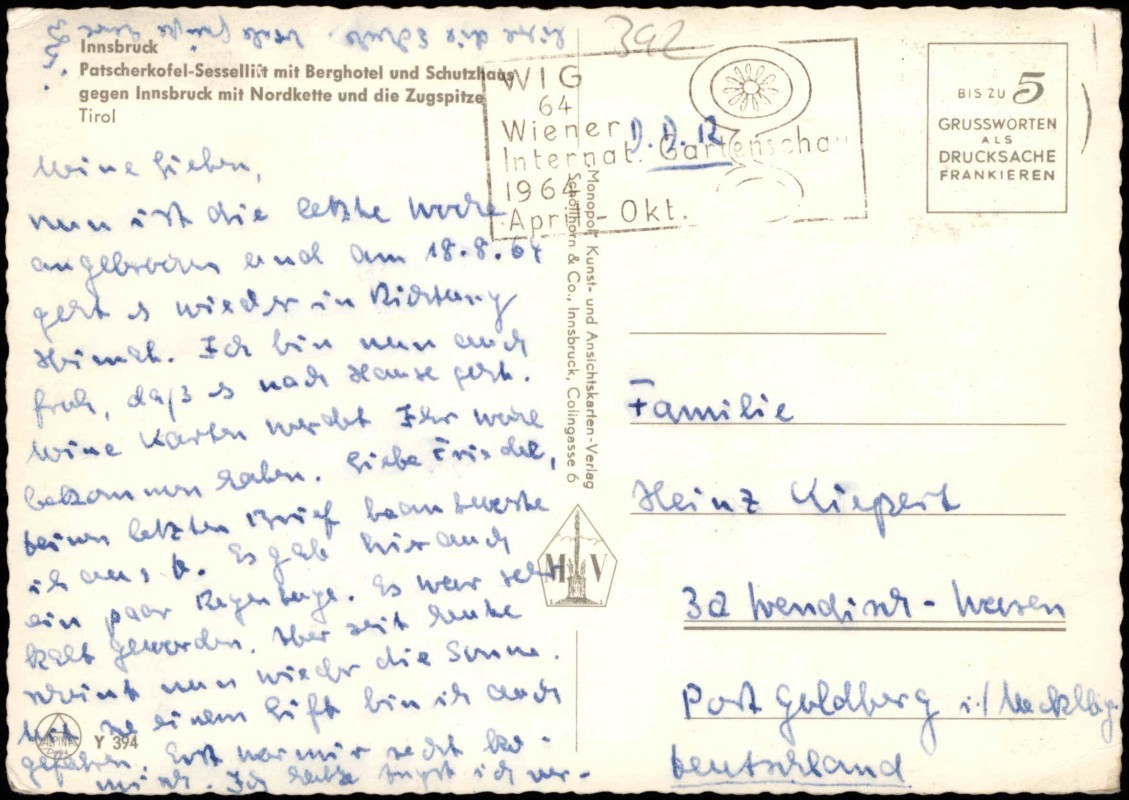 Innsbruck
Patscherkofel-Sessellift mit Berghotel und Schutzhaus
gegen Innsbruck mit Nordkette und die Zugspitze
Tirol
Meine Lieben,
nun ist die letzte Woche
angebrochen und am 18.8.64
geht es wieder in Richtung
Heimat. Ich bin nun auch
froh, daß es nach Hause geht.
Meine Karten werdet Ihr wohl
bekommen haben. Liebe Friedel,
deinen letzten Brief beantworte
ich aus B. Es gab hier auch
ein paar Regentage. Es war sehr
kalt geworden. Aber seit heute
scheint nun wieder die Sonne.
Mit so einem Lift bin ich auch
gefahren. Erst war mir recht ko-
misch. Ich hatte Angst ich ver-
ALPINA
Y 394
392
WIG
64
Wiener
Internat. Gartenschau
1964
April - Okt.
D.D.R.
BIS ZU 5
GRUSSWORTEN
ALS
DRUCKSACHE
FRANKIEREN
Monopol Kunst- und Ansichtskarten-Verlag
Schöllhorn & Co., Innsbruck, Colingasse 6
M V
Familie
Heinz Kiepert
3a Wendisch-Waren
Post Goldberg i./Mecklbg.
Deutschland